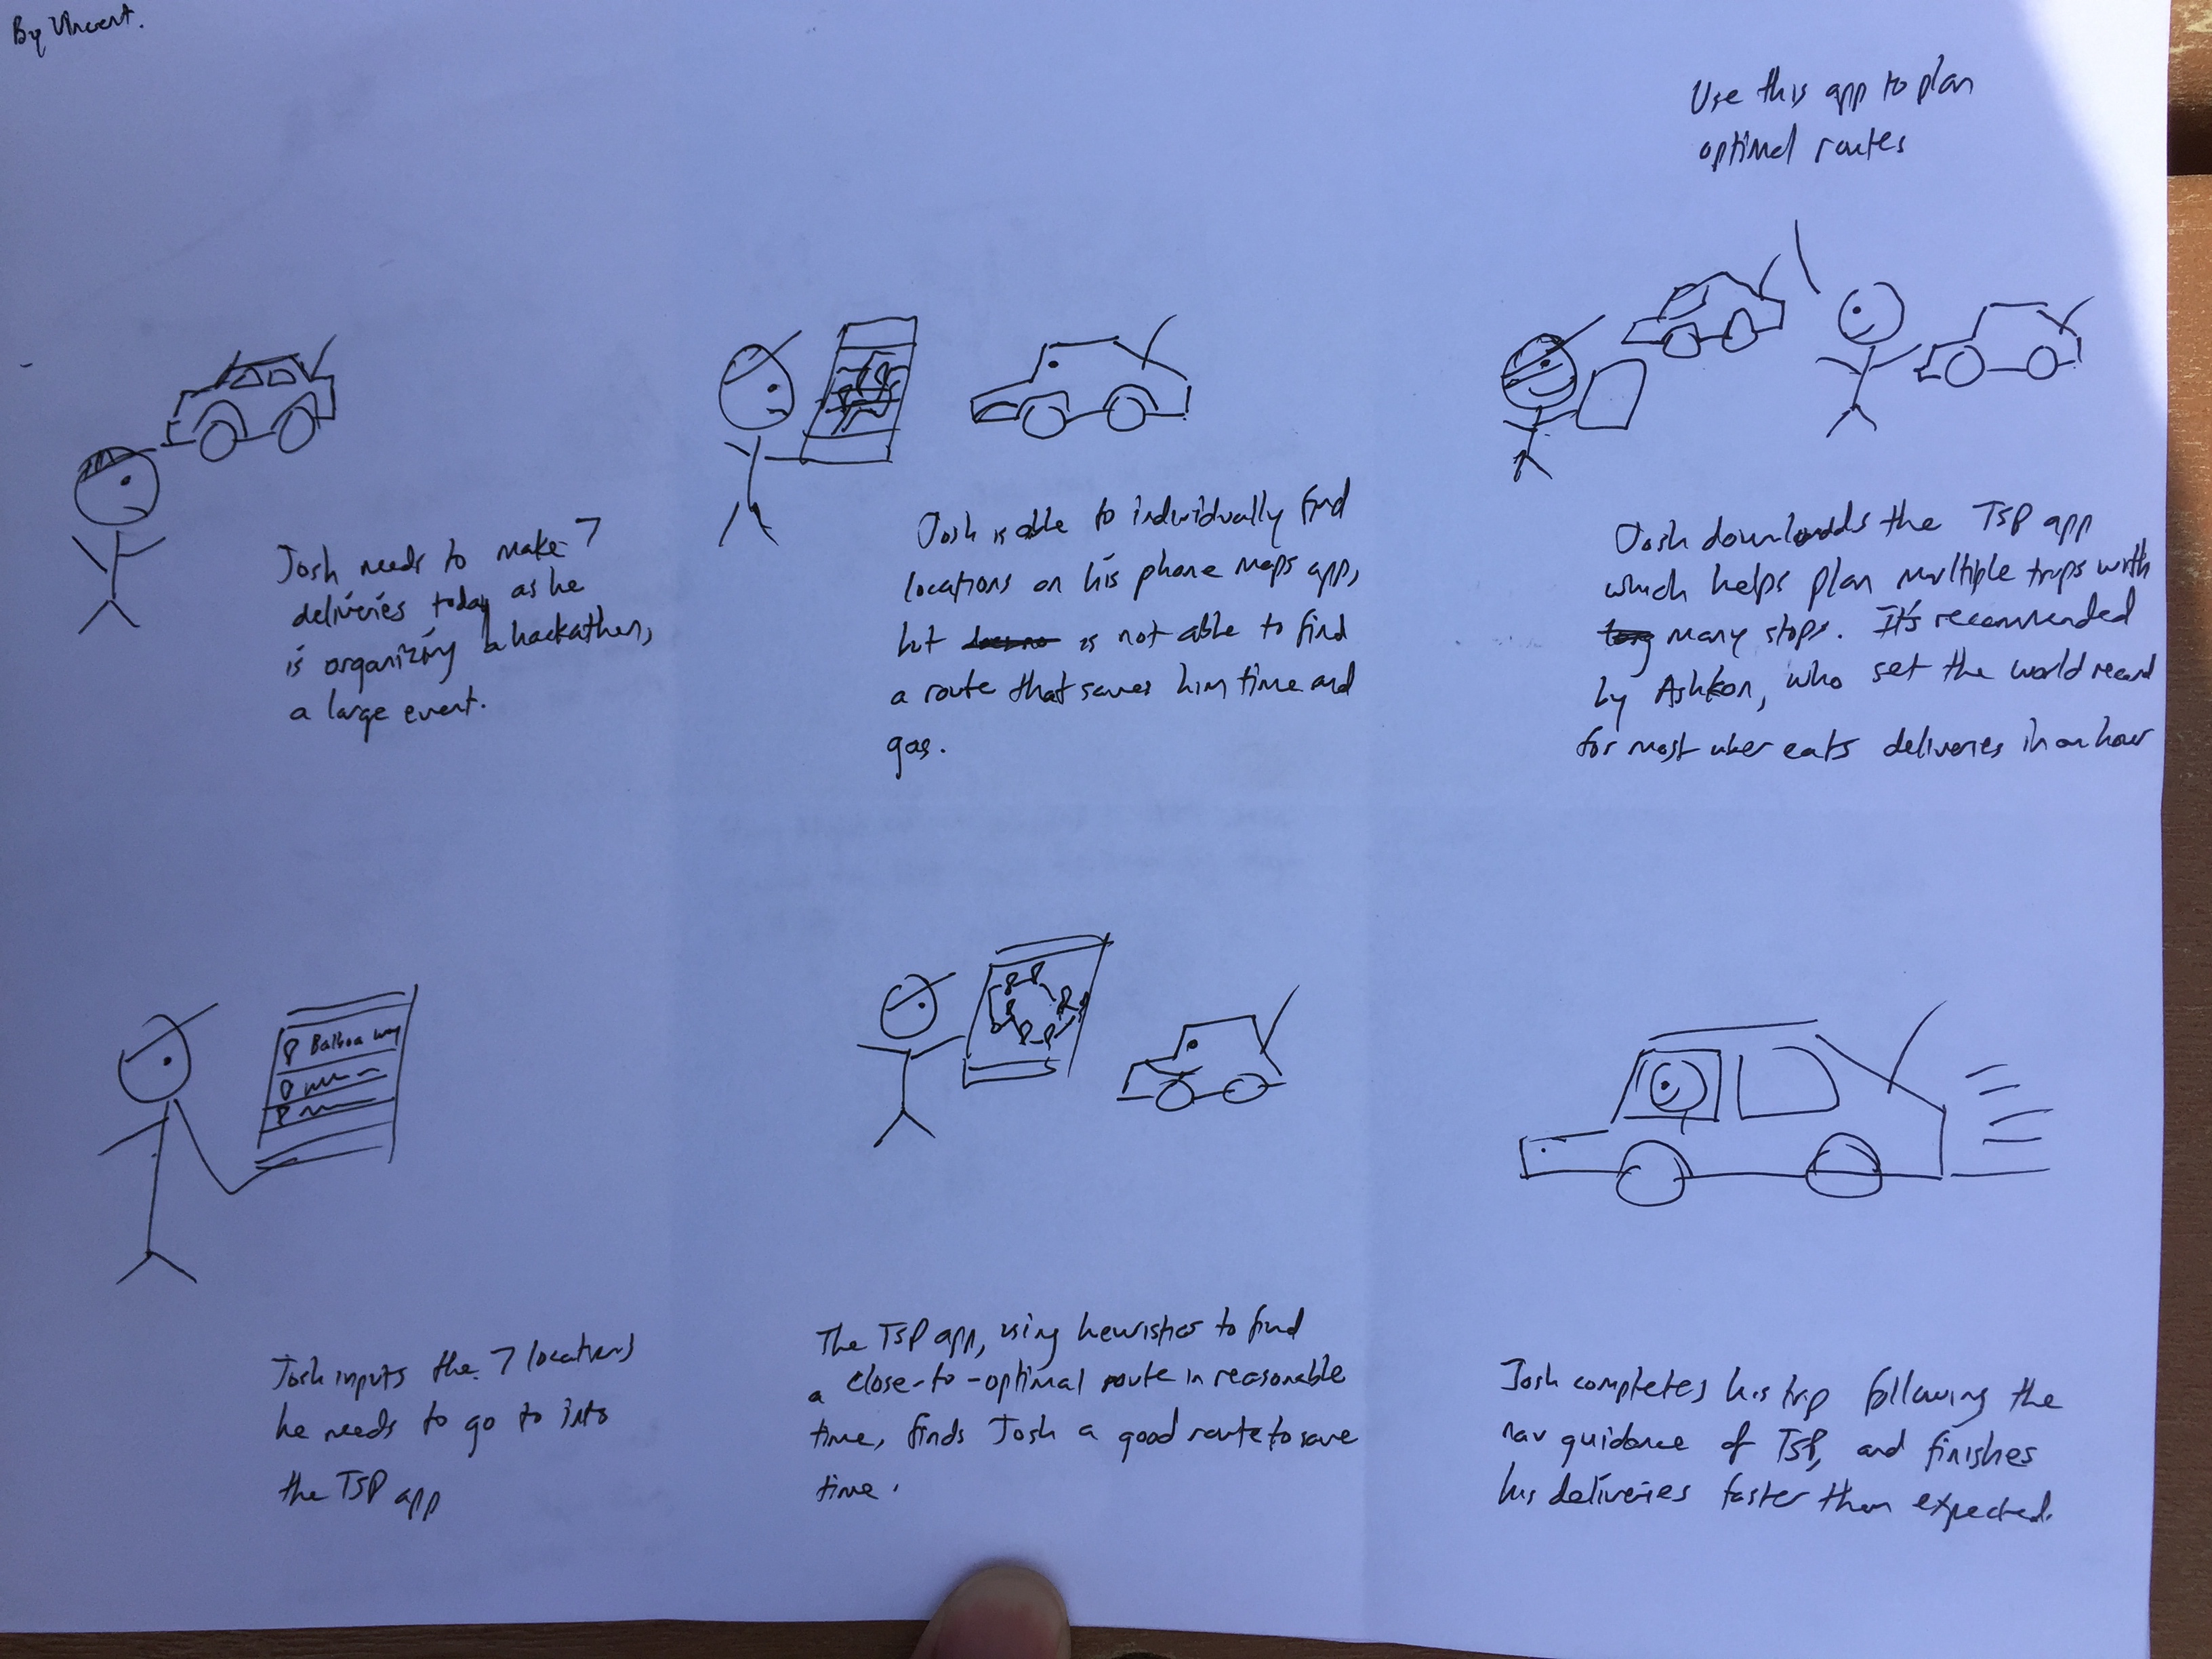 By Vincent.
Use this app to plan
optimal routes
Josh needs to make 7
deliveries today as he
is organizing a hackathon,
a large event.
Josh is able to individually find
locations on his phone maps app,
but is not able to find
a route that saves him time and
gas.
Josh downloads the TSP app
which helps plan multiple trips with
many stops. It's recommended
by Ashkon, who set the world record
for most uber eats deliveries in an hour
Balboa way
Josh inputs the 7 locations
he needs to go to into
the TSP app
The TSP app, using heuristics to find
a close-to-optimal route in reasonable
time, finds Josh a good route to save
time.
Josh completes his trip following the
nav guidance of TSP, and finishes
his deliveries faster than expected.